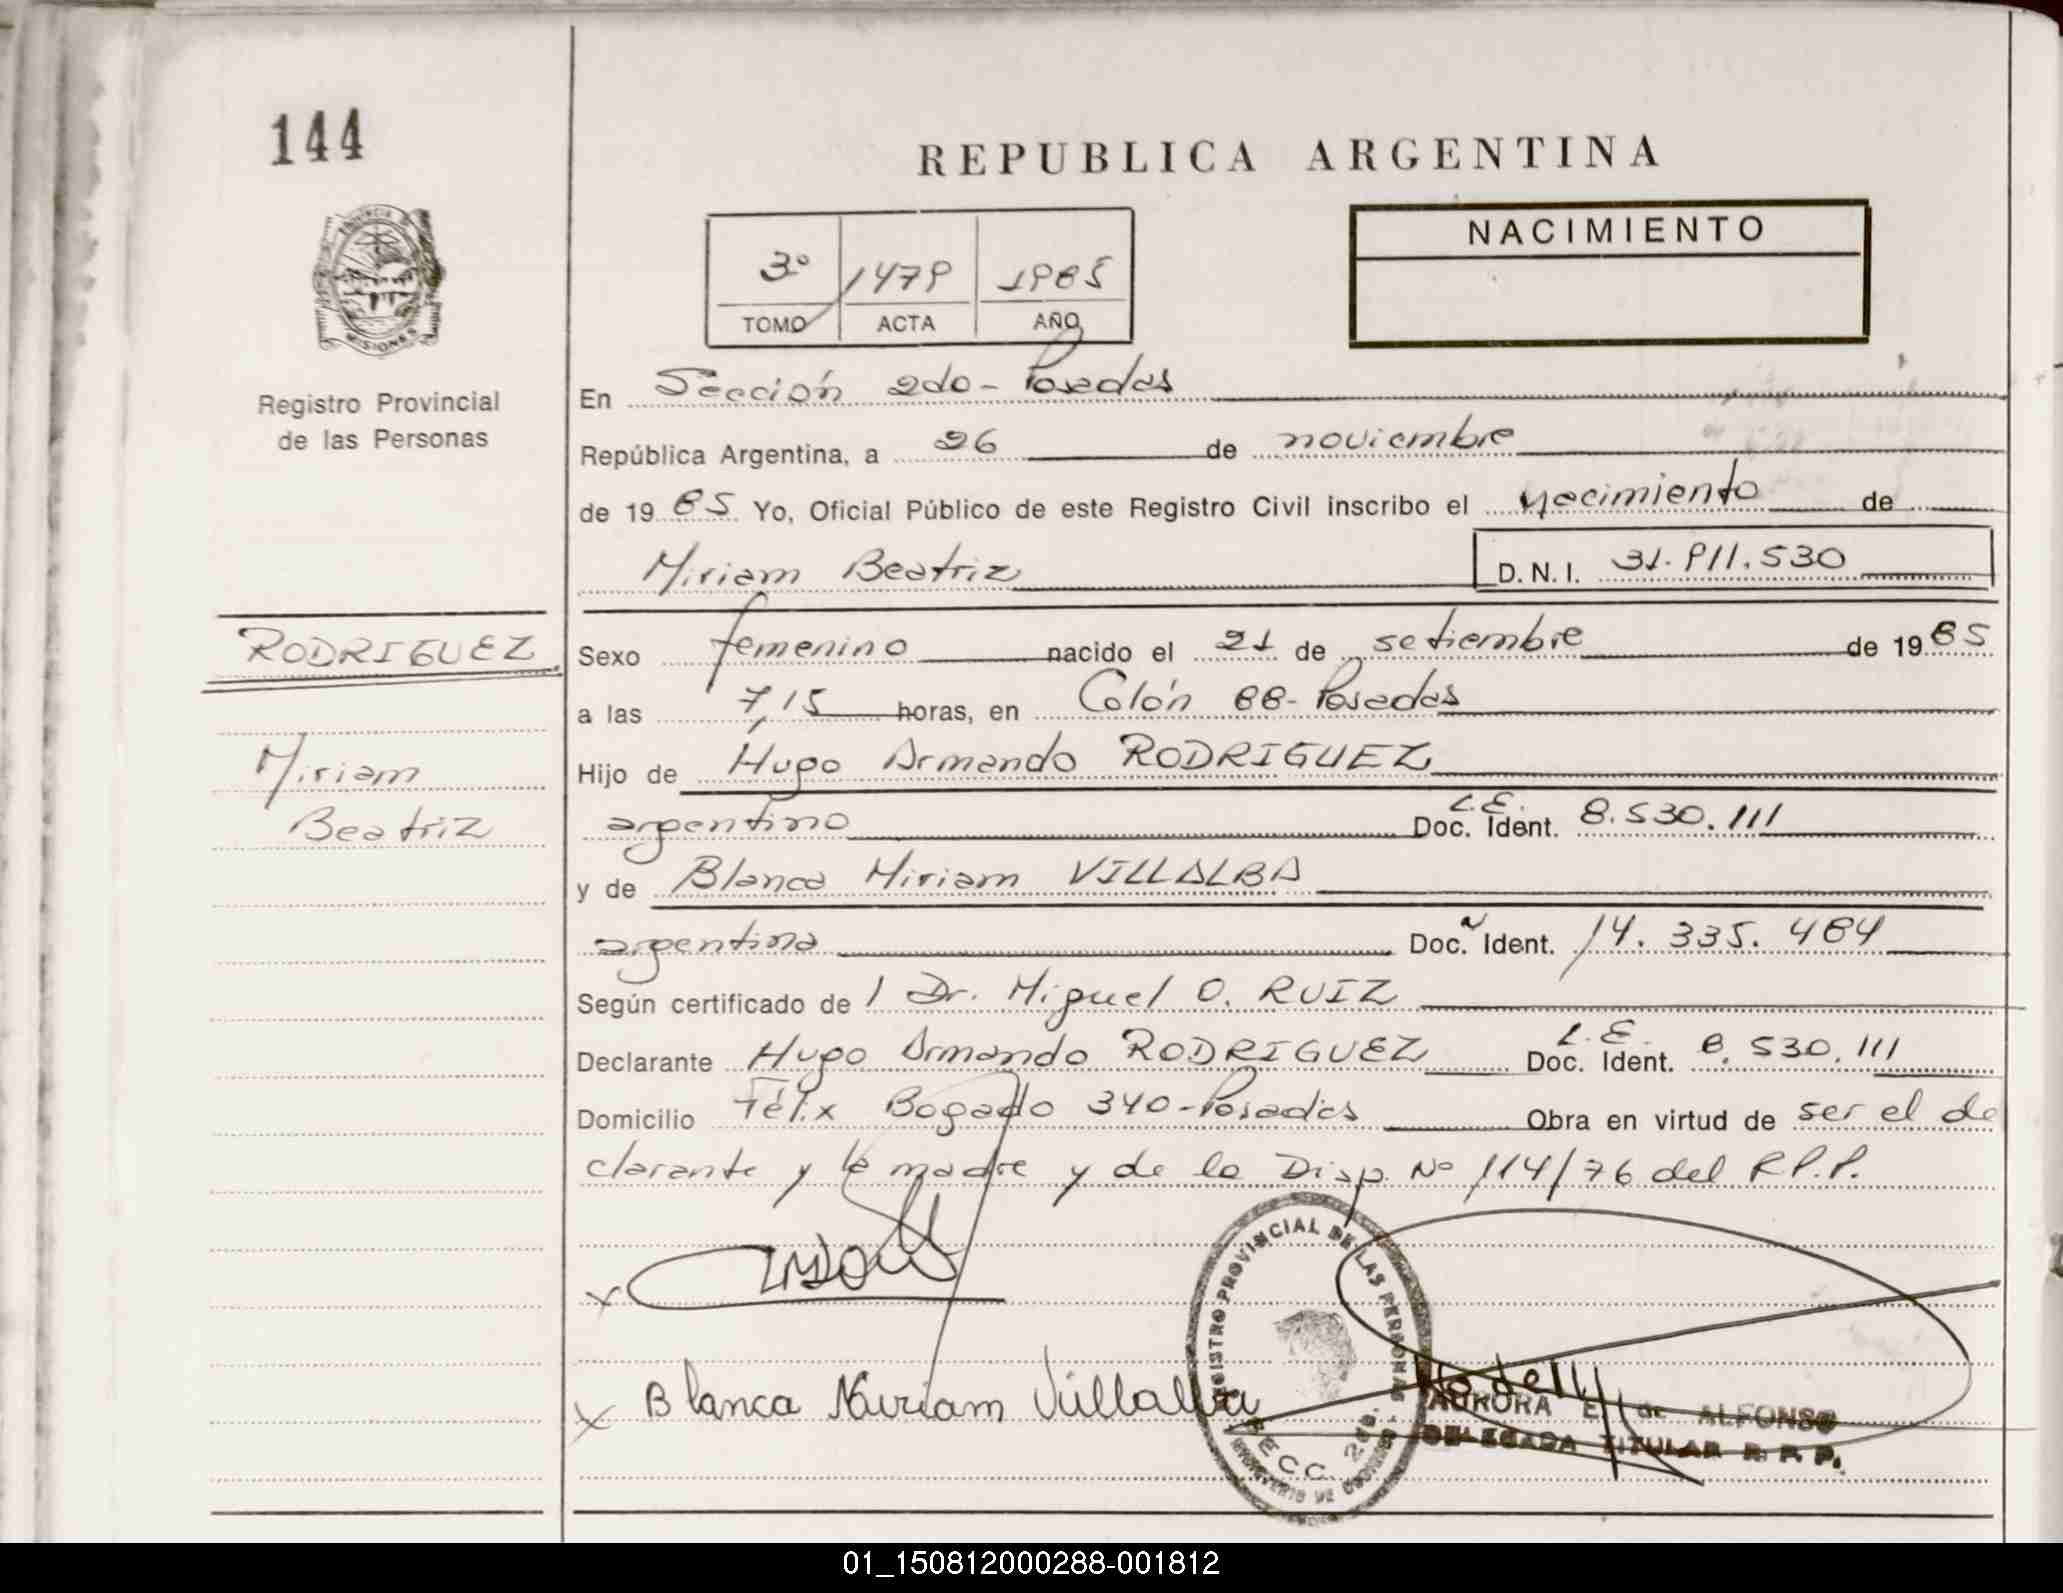 144
REPUBLICA ARGENTINA
PROVINCIA DE
MISIONES
Registro Provincial
de las Personas
3º 1479 1985
TOMO ACTA AÑO
NACIMIENTO
En Sección 2do - Posadas
República Argentina, a 26 de noviembre
de 1985 Yo, Oficial Público de este Registro Civil inscribo el nacimiento de
Miriam Beatriz D.N.I. 31.911.530
RODRIGUEZ
Miriam
Beatriz
Sexo femenino nacido el 21 de setiembre de 1985
a las 7,15 horas, en Colón 88 - Posadas
Hijo de Hugo Armando RODRIGUEZ
argentino L.E. Doc. Ident. 8.530.111
y de Blanca Miriam VILLALBA
argentina Doc. Ident. 14.335.484
Según certificado de / Dr. Miguel O. RUIZ
Declarante Hugo Armando RODRIGUEZ L.E. Doc. Ident. 8.530.111
Domicilio Félix Bogado 340 - Posadas Obra en virtud de ser el de
clarante y la madre y de la Disp. Nº 114/76 del R.P.P.
x
x Blanca Miriam Villalba
REGISTRO PROVINCIAL DE LAS PERSONAS
SECC. 2da.
AURORA E. de ALFONSO
DELEGADA TITULAR R.P.P.
01_150812000288-001812